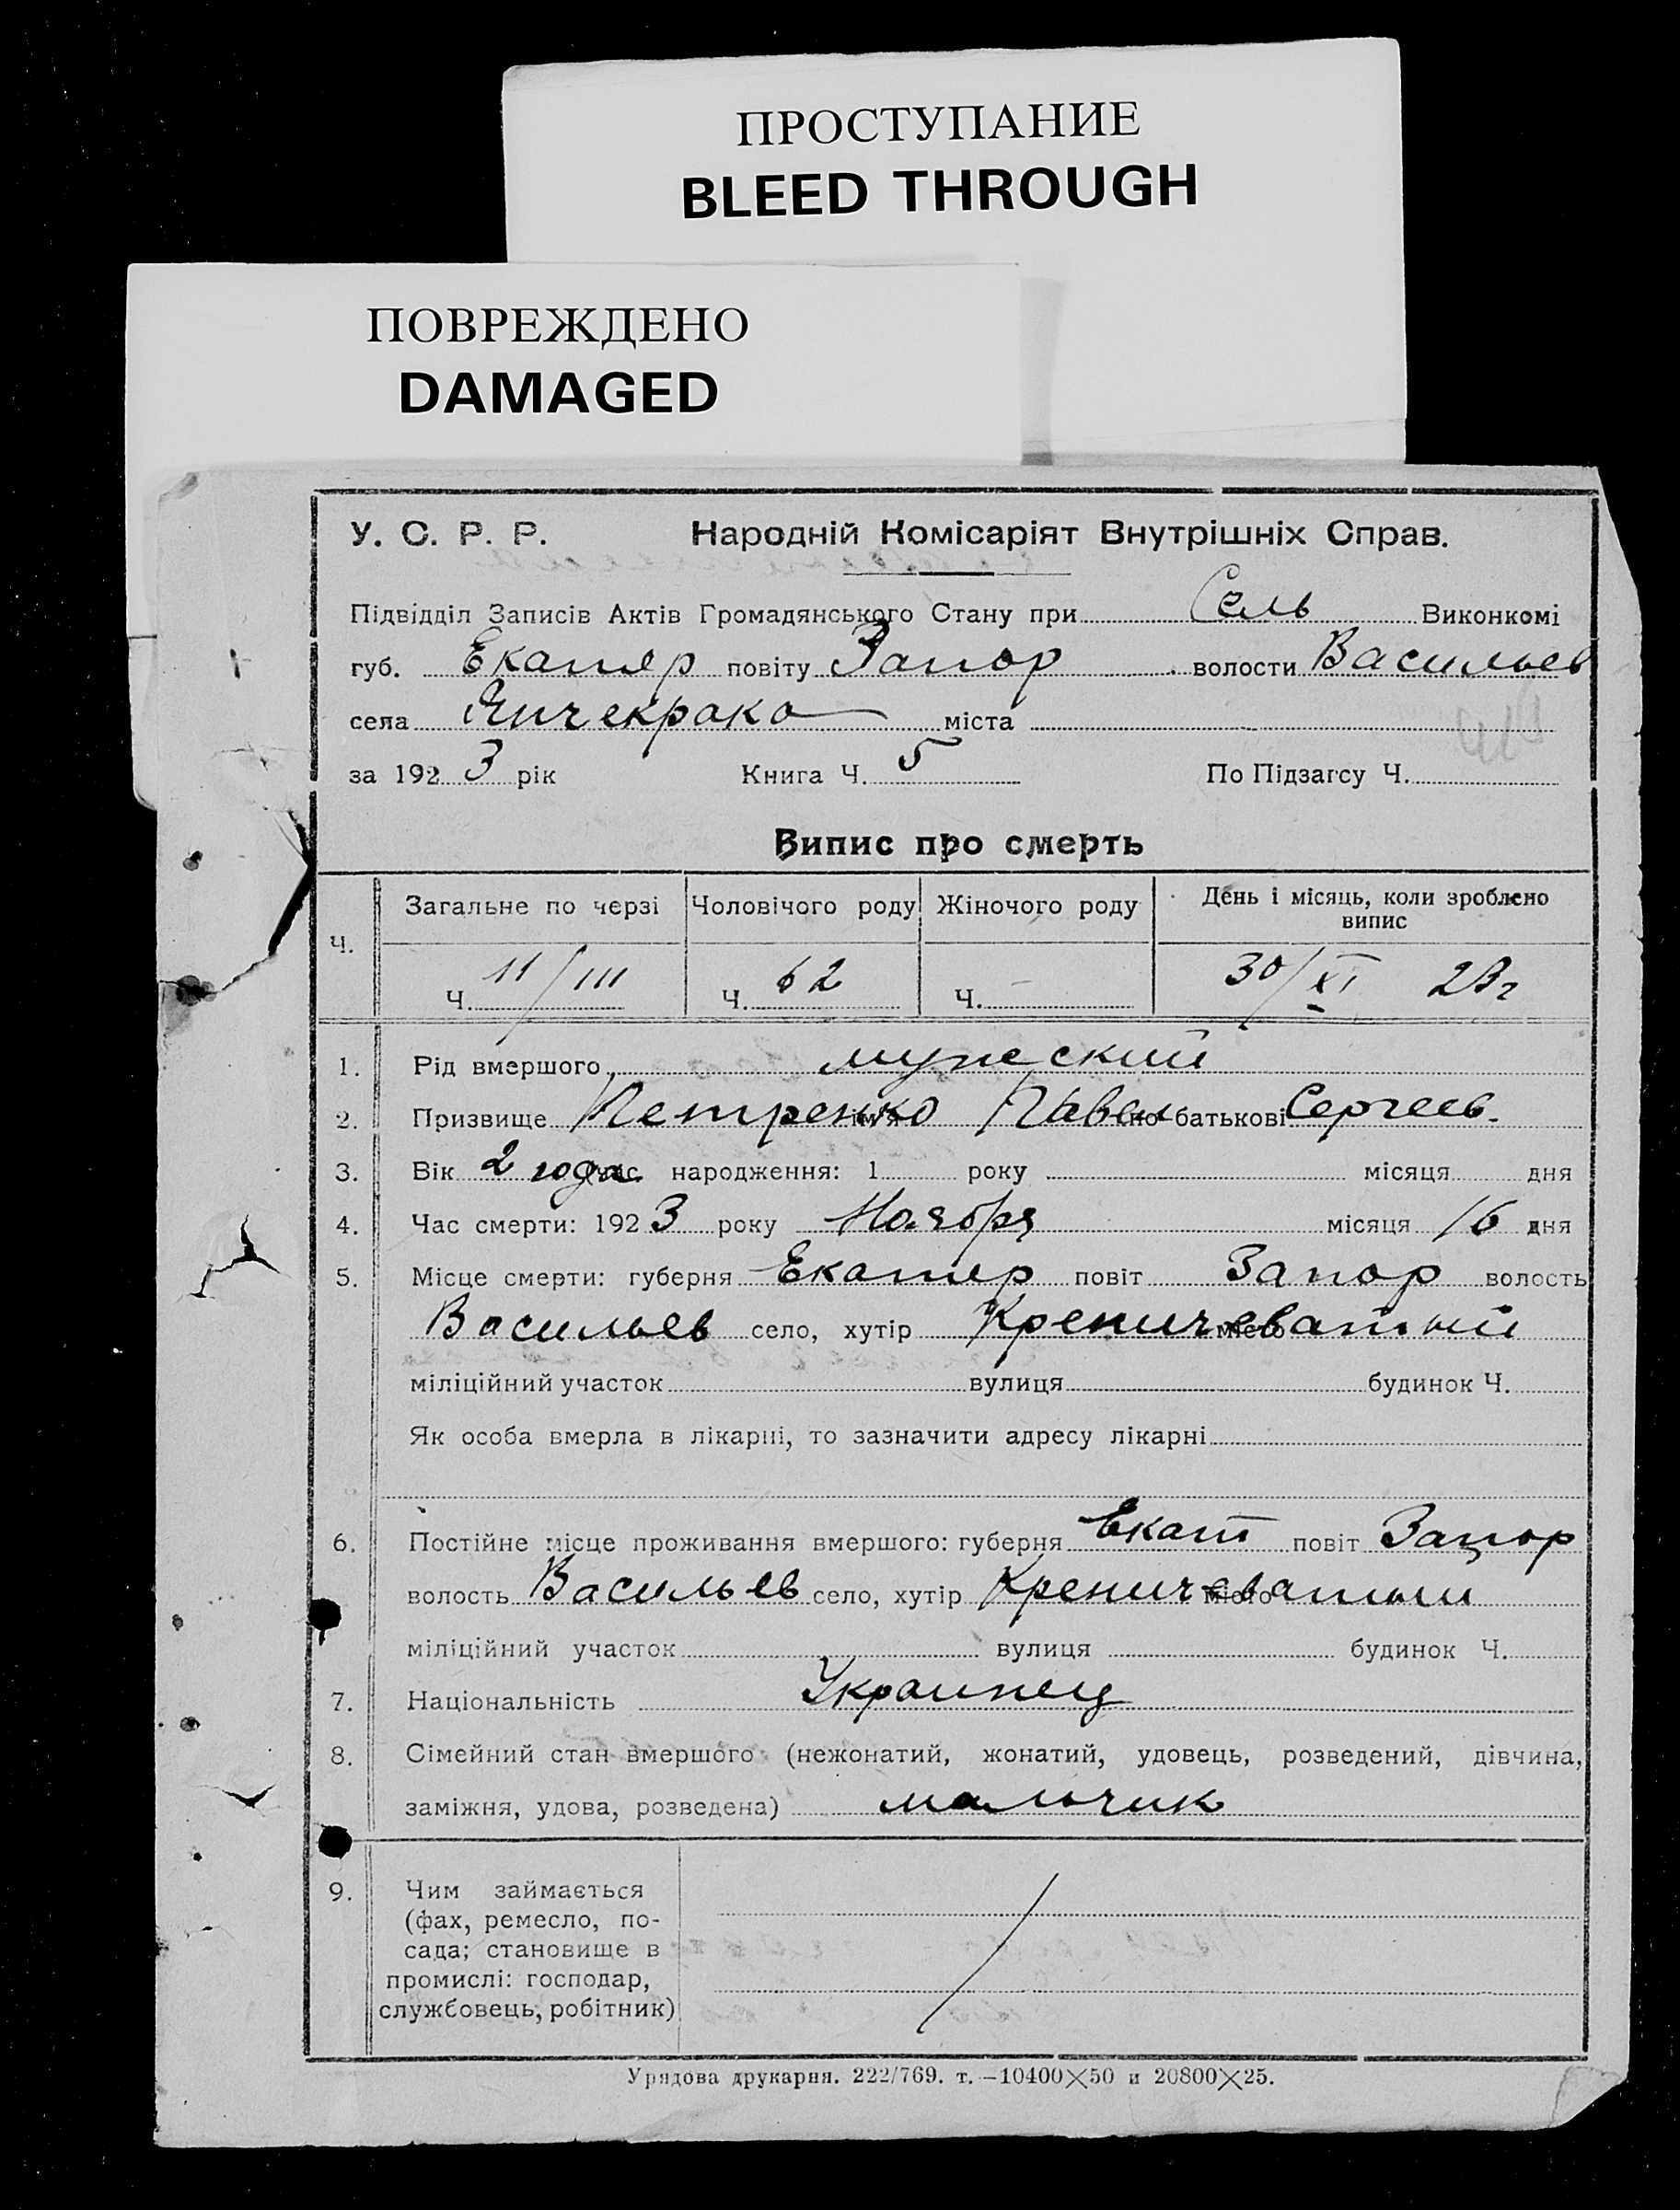 ПРОСТУПАНИЕ
BLEED THROUGH
ПОВРЕЖДЕНО
DAMAGED
У. С. Р. Р. Народній Комісаріят Внутрішніх Справ.
Підвідділ Записів Актів Громадянського Стану при Сель Виконкомі
губ. Екатер повіту Запор волости Васильев
села Янчекрака міста
за 1923 рік Книга Ч. 5 По Підзагсу Ч.
Випис про смерть
Ч. Загальне по черзі Чоловічого роду Жіночого роду День і місяць, коли зроблено випис
Ч. 11/111 Ч. 62 Ч. – 30/XI 23 г
1. Рід вмершого мужеский
2. Призвище Петренко ім'я Павел по батькові Сергеев.
3. Вік 2 года час народження: 1 року місяця дня
4. Час смерти: 1923 року Ноября місяця 16 дня
5. Місце смерти: губерня Екатер повіт Запор волость
Васильев село, хутір Креничеватый місто
міліційний участок вулиця будинок Ч.
Як особа вмерла в лікарні, то зазначити адресу лікарні
6. Постійне місце проживання вмершого: губерня Екат повіт Запор
волость Васильев село, хутір Креничеватый місто
міліційний участок вулиця будинок Ч.
7. Національність Украинец
8. Сімейний стан вмершого (нежонатий, жонатий, удовець, розведений, дівчина,
заміжня, удова, розведена) мальчик
9. Чим займається
(фах, ремесло, по-
сада; становище в
промислі: господар,
службовець, робітник)
Урядова друкарня. 222/769. т. –10400×50 и 20800×25.